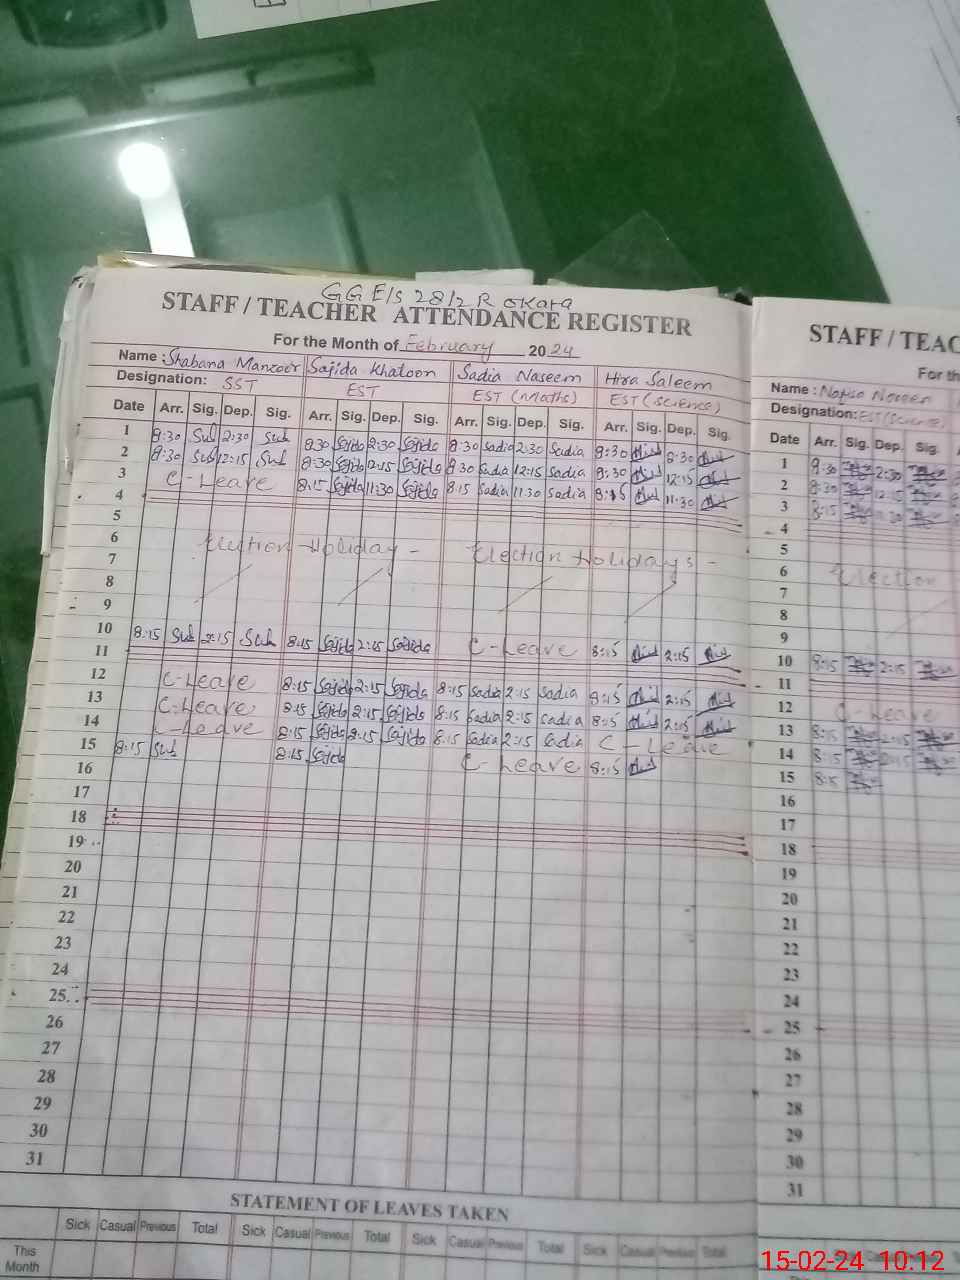 GGE/S 28/2 R Okara
STAFF / TEACHER ATTENDANCE REGISTER
For the Month of February 2024
Name: Shabana Manzoor Sajida Khatoon Sadia Naseem Hira Saleem
Designation: SST EST EST (Maths) EST (Science)
Date Arr. Sig. Dep. Sig. Arr. Sig. Dep. Sig. Arr. Sig. Dep. Sig. Arr. Sig. Dep. Sig.
1 8:30 2:30 8:30 Sajida 2:30 Sajida 8:30 Sadia 2:30 Sadia 8:30
2 8:30 12:15 8:30 Sajida 12:15 Sajida 8:30 Sadia 12:15 Sadia 8:30 12:15
3 C-Leave 8:15 Sajida 11:30 Sajida 8:15 Sadia 11:30 Sadia 8:15 11:30
4
5
6
7 Election Holiday - Election Holidays -
8
9
10 8:15 2:15 8:15 Sajida 2:15 Sajida C-Leave 8:15 2:15
11
12 C-Leave 8:15 Sajida 2:15 Sajida 8:15 Sadia 2:15 Sadia 8:15 2:15
13 C-Leave 8:15 Sajida 2:15 Sajida 8:15 Sadia 2:15 Sadia 8:15 2:15
14 C-Leave 8:15 Sajida 2:15 Sajida 8:15 Sadia 2:15 Sadia C-Leave
15 8:15 8:15 Sajida C-Leave 8:15
16
17
18
19
20
21
22
23
24
25
26
27
28
29
30
31
STATEMENT OF LEAVES TAKEN
Sick Casual Previous Total Sick Casual Previous Total Sick Casual Previous Total Sick Casual Previous Total
This Month
STAFF / TEAC
For th
Name: Noreen
Designation: EST (Science)
Date Arr. Sig. Dep. Sig.
1 8:30 2:30
2 8:30 12:15
3 8:15 11:30
4
5
6 Election
7
8
9
10 8:15 2:15
11
12 C-Leave
13 8:15 2:15
14 8:15 2:15
15 8:15
16
17
18
19
20
21
22
23
24
25
26
27
28
29
30
31
Sick Casual Previous
15-02-24 10:12